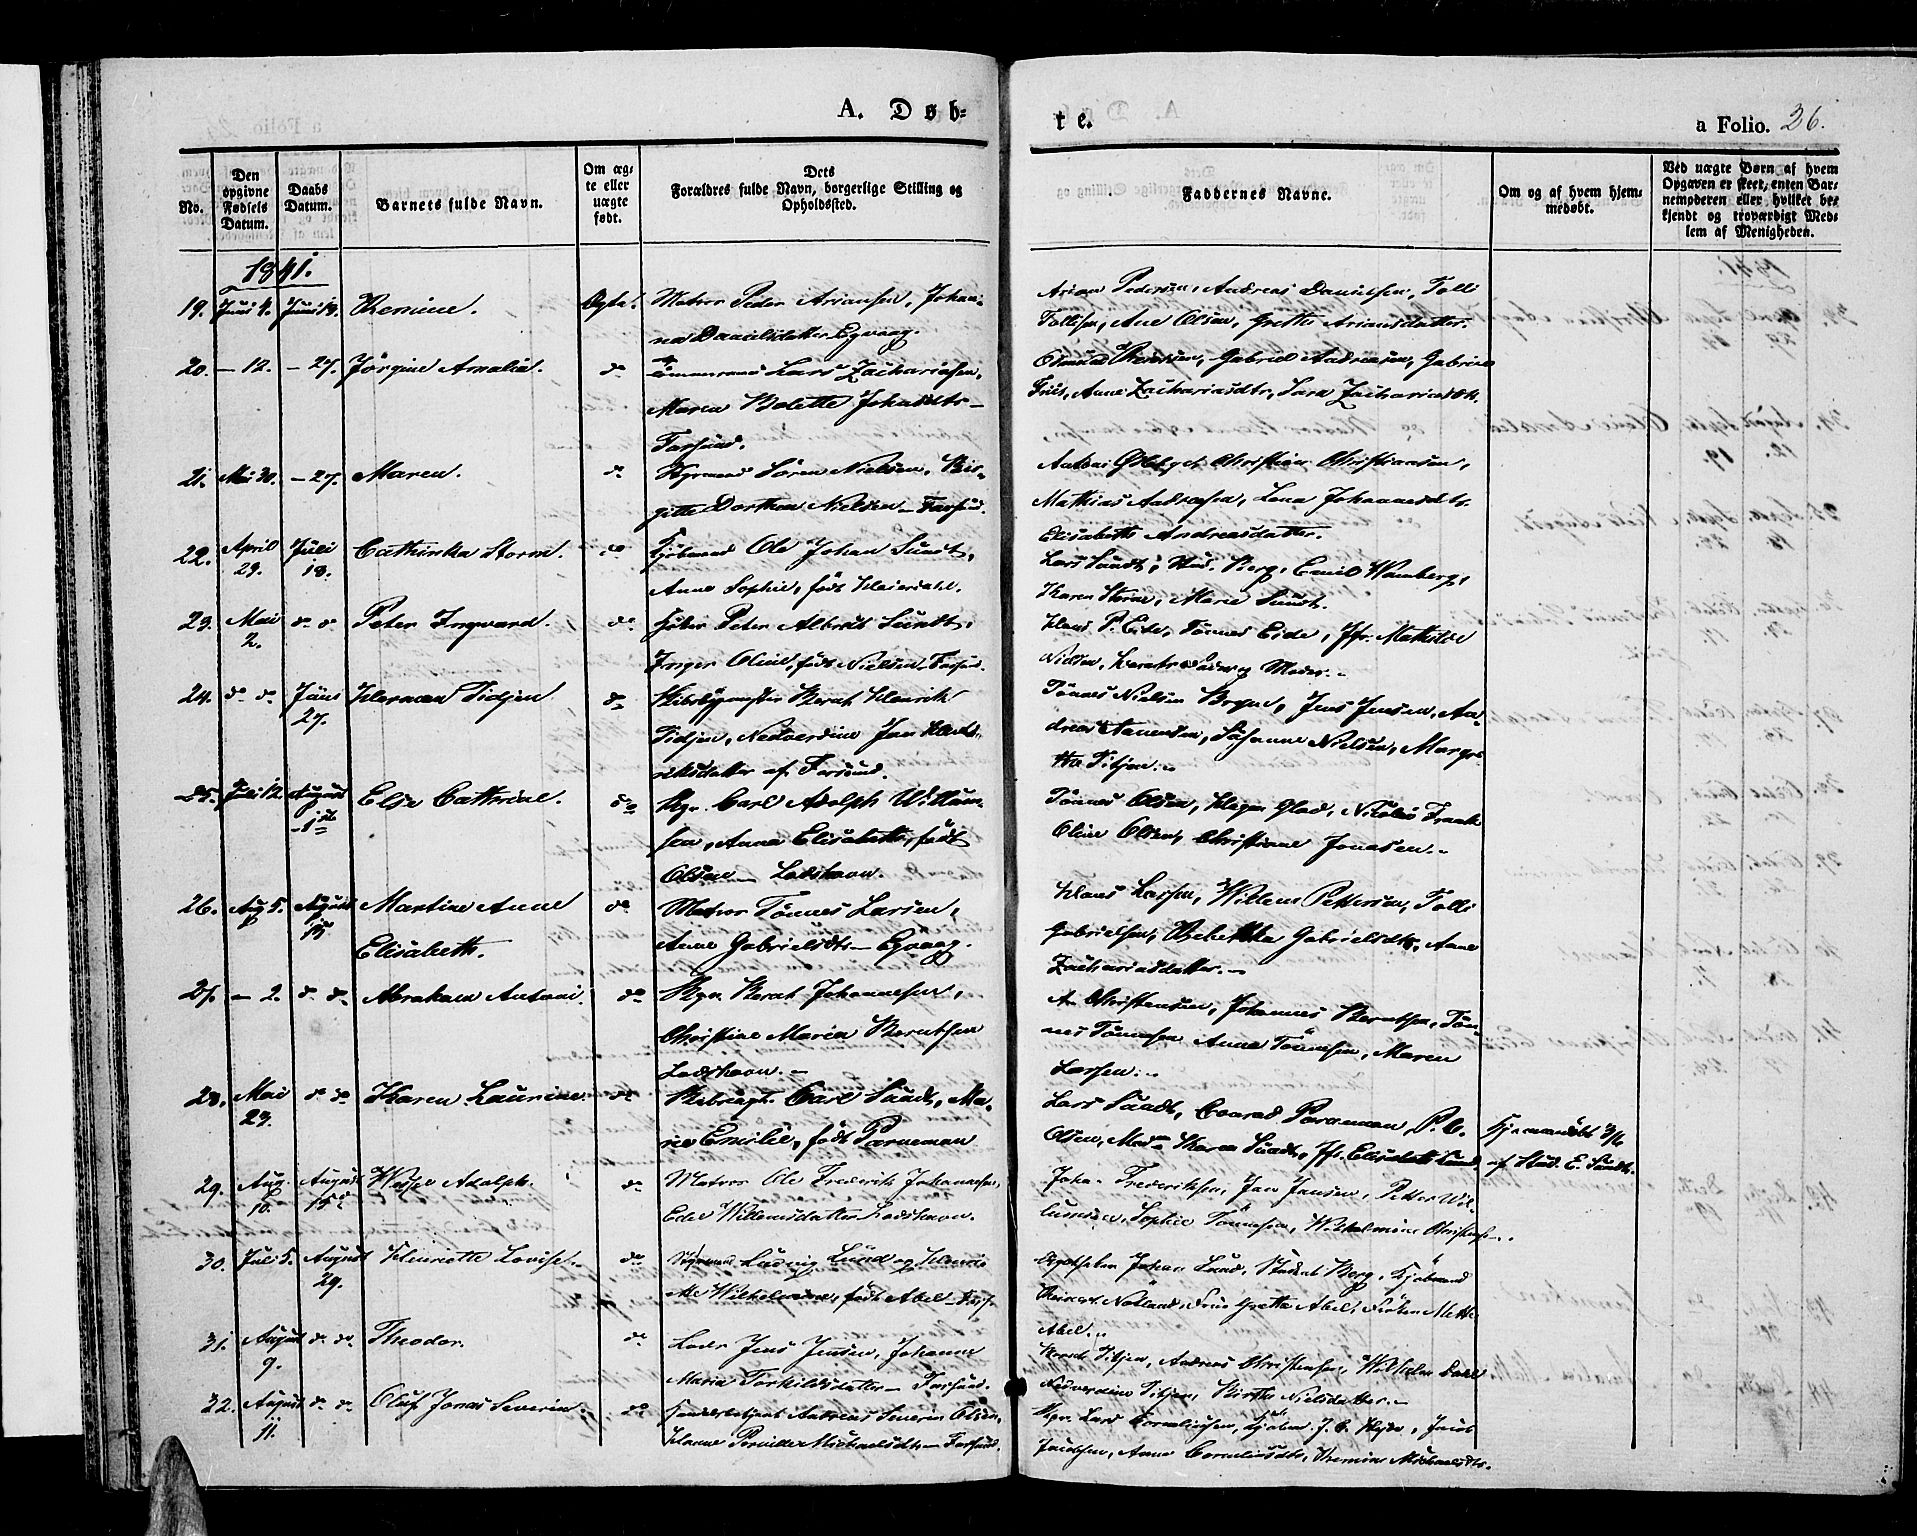 A. Døb-
te.
a Folio. 36.
No.
Den opgivne Fødsels Datum.
Daabs Datum.
Barnets fulde Navn.
Om ægte eller uægte født.
Dets Forældres fulde Navn, borgerlige Stilling og Opholdssted.
Faddernes Navne.
Om og af hvem hjemmedøbt.
Ved uægte Børn af hvem Opgaven er skeet, enten Barnemoderen eller hvilket bekjendt og troværdigt Medlem af Menigheden.
1841.
19. Juni 4. Juni 19. Ægte. Matros Peder Ariansen, Johan-
ne Danielsdatter Egvaag.
Arian Pedersen, Andreas Danielsen, Tolli
Tollisen, Ane Olsen, Grethe Ariansdatter.
20. - 12. - 27. Jörgine Amalia. do Lars Zachariasen,
Maren Bolette Johnsdtr -
Farsund.
Gabriel Andreasen, Gabriel
Friis, Anne Zachariasdtr, Sara Zachariasdtr.
21. Mai 30. - 27. Maren. do Sören Nielsen, Bir-
gitte Dorthea Nielsen - Farsund.
Christian Christiansen,
Mathias Andreasen, Lena Johannesdtr.
Elisabeth Andreasdatter.
22. April 29. Juli 18. Cathinka Storm. do Kjöbmand Ole Johan Sundt,
Anne Sophie, födt
Lars Sundt, Stud. Berg, Emil Wamberg,
Karen Storm, Marie Sundt.
23. Mai 2. do do Peter Ingvard. do Peter Albert Sundt,
Inger Oline, födt Nielsen. Farsund.
P. Eide, Tönnes Eide, Jfr. Mathilde
Nielsen, Moder.
24. do do Juni 27. Herman Tidjen do Berent Henrik
Tidjen, Nedverdine Jan Hend-
riksdatter af Farsund.
Tönnes Nielsen Jens Jensen, An-
dreas Susanne Nielsen, Margre-
the Titjen.
25. Juli 12. August 1ste Else Cathrine. do Carl Adolph Willum-
sen, Anne Elisabeth, födt
Olsen - Loshavn.
Tönnes Olsen, Glad, Nicolai Frank
Oline Olsen, Christiane Jonasen.
26. Aug 5. August 15 Martine Anne
Elisabeth. do Matros Tönnes Larsen,
Anne Gabrielsdtr - Egvaag.
Hans Larsen, Willum Pettersen, Tolli
Gabrielsen, Rebekka Gabrielsdtr, Anne
Zachariasdatter.
27. - 2. do do Abraham Antoni. do Berent Johannesen,
Christine Maria Berntsen
Loshavn.
A. Christensen, Johannes Berntsen, Tön-
nes Tönnesen Anne Tönnesen, Maren
Larsen.
28. Mai 23. do do Karen Laurine. do Carl Sundt, Ma-
rie Emilie, födt Parneman
Lars Sundt, Conrad Parneman, P. C.
Olsen, Mad. Karen Sundt, Jfr. Elisabeth Lund
Hjemmedöbt 3/6
af Stud. E. Sundt.
29. Aug. 10. August 15de Adolph. do Matros Ole Frederik Johannesen,
Willumsdatter Loshavn.
Johan Frederiksen, Jan Jansen, Petter Wil-
lumsen, Sophie Tönnesen, Wilhelmine Christens.
30. Juli 5. August 29. Henriette Lovise. do Ludvig Lund og Henri-
ette Wilhelmine, födt Abel - Fars.
Johan Lund, Student Berg, Kjöbmand
Reinert Nöland, Grethe Abel, Mette
Abel.
31. August 9. do do Theodor. do Lods Jens Jensen, Johanne
Maria Torkildsdatter - Farsund.
Titjen, Andreas Christensen, Wilhelm Dahl
Nedverdine Titjen, Birthe Nielsdatter.
32. August 11. do do Oluf Jonas Severin. do Andreas Severin Olsen,
Hanne Michaelsdtr - Farsund.
Lars Corneliussen, J. C. Jacob
Jacobsen, Anne Corneliusdtr, Michaelsdtr.